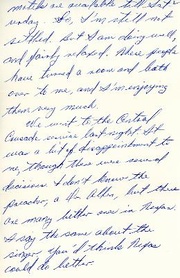 until
unday. So, I'm still not
settled. But I am doing well,
and fairly relaxed. These people
have turned a room and bath
over to me, and I'm enjoying
them very much.
We went to the Central
Crusade service last night. It
was a bit of disappointment to
me, though there were several
decisions. I don't know the
preacher, a Dr. Allen, but there
are many better ones in
I say the same about the
singer, you &
could do better.